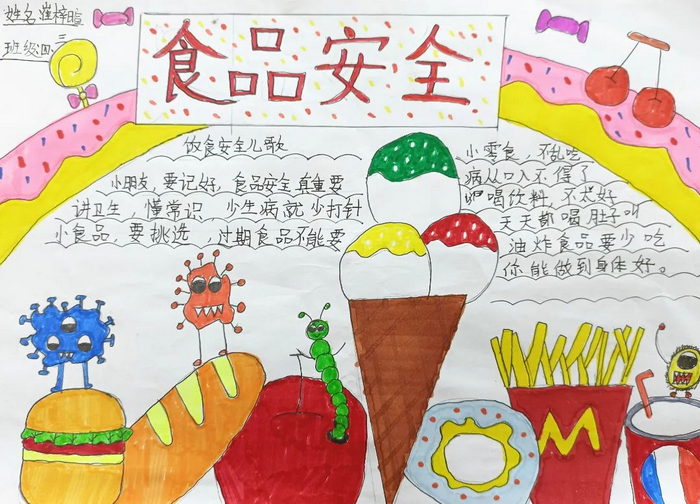 姓名崔梓暄
班级四二
食品安全
饮食安全儿歌
小朋友,要记好,食品安全真重要
讲卫生,懂常识 少生病就少打针
小食品,要挑选,过期食品不能要
小零食,不乱吃
病从口入不得了
喝饮料,不太好
天天都喝肚子叫
油炸食品要少吃
你能做到身体好。
M